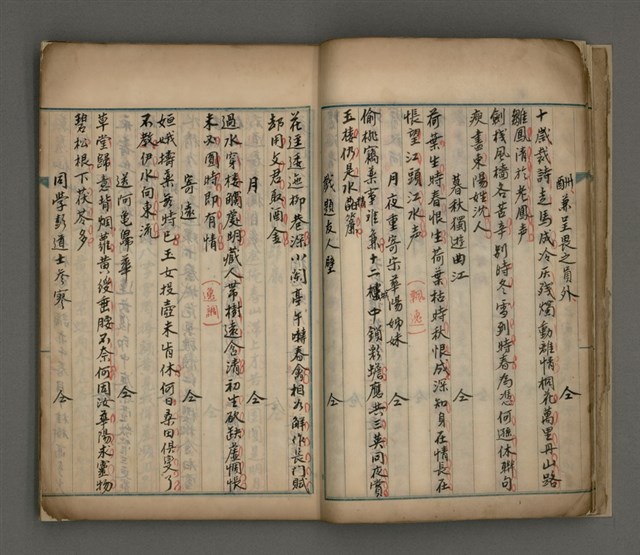 酬兼呈畏之員外 仝
十歲裁詩走馬成冷灰殘燭動離情桐花萬里丹山路
雛鳳清於老鳳声
劍棧風檣各苦辛別時冬雪到時春為憑何遜休聯句
瘦盡東陽姓沈人
暮秋獨遊曲江 仝
荷葉生時春恨生荷葉枯時秋恨成深知身在情長在
悵望江頭江水声
月夜重寄宋華陽姊妹 仝
偷桃竊藥事難兼十二樓中鎖彩蟾應共三英同夜賞
玉樓仍是水晶簾
戲題友人壁 仝
花逕逶迤柳巷深小闌亭午囀春禽相如解作長門賦
却用文君取酒金
月 仝
過水穿樓觸處明藏人帶樹遠含清初生欲缺虛惆悵
未必圓時即有情
寄遠 仝
姮娥擣藥無時已玉女投壺未肯休何日桑田俱變了
不教伊水向東流
送阿龜歸華 仝
草堂歸意背烟蘿黃綬垂腰不奈何因汝華陽求藥物
碧松根下茯苓多
同學彭道士參寥 仝